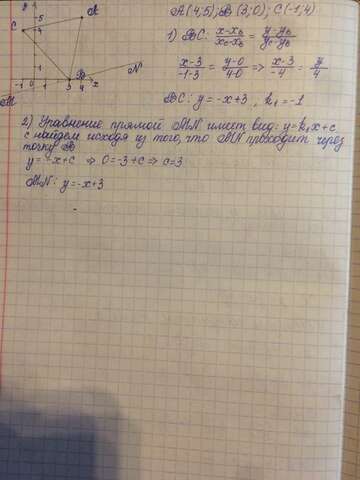 A(4,5); B(3;0); C(-1,4)
y
5
4
1
-1 0 1 3 4 x
C
A
B
N
M
1) BC: (x-x_B)/(x_C-x_B) = (y-y_B)/(y_C-y_B)
(x-3)/(-1-3) = (y-0)/(4-0) => (x-3)/-4 = y/4
BC: y = -x+3, k₁ = -1
2) Уравнение прямой MN имеет вид: y=k₁x+c
с найдем исходя из того, что MN проходит через
точку B
y = -x+c => 0=-3+c => c=3
MN: y=-x+3